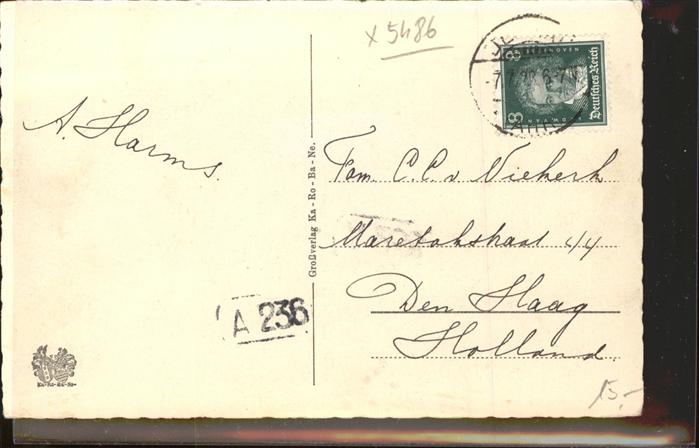 x 5486
8 BEETHOVEN 8
Deutsches Reich
A. Harms.
Großverlag Ka-Ro-Ba-Ne.
Fam. C. C. v Niekerk
44
Den Haag
Holland.
A 236
Ka-Ro-Ba-Ne-
15.-